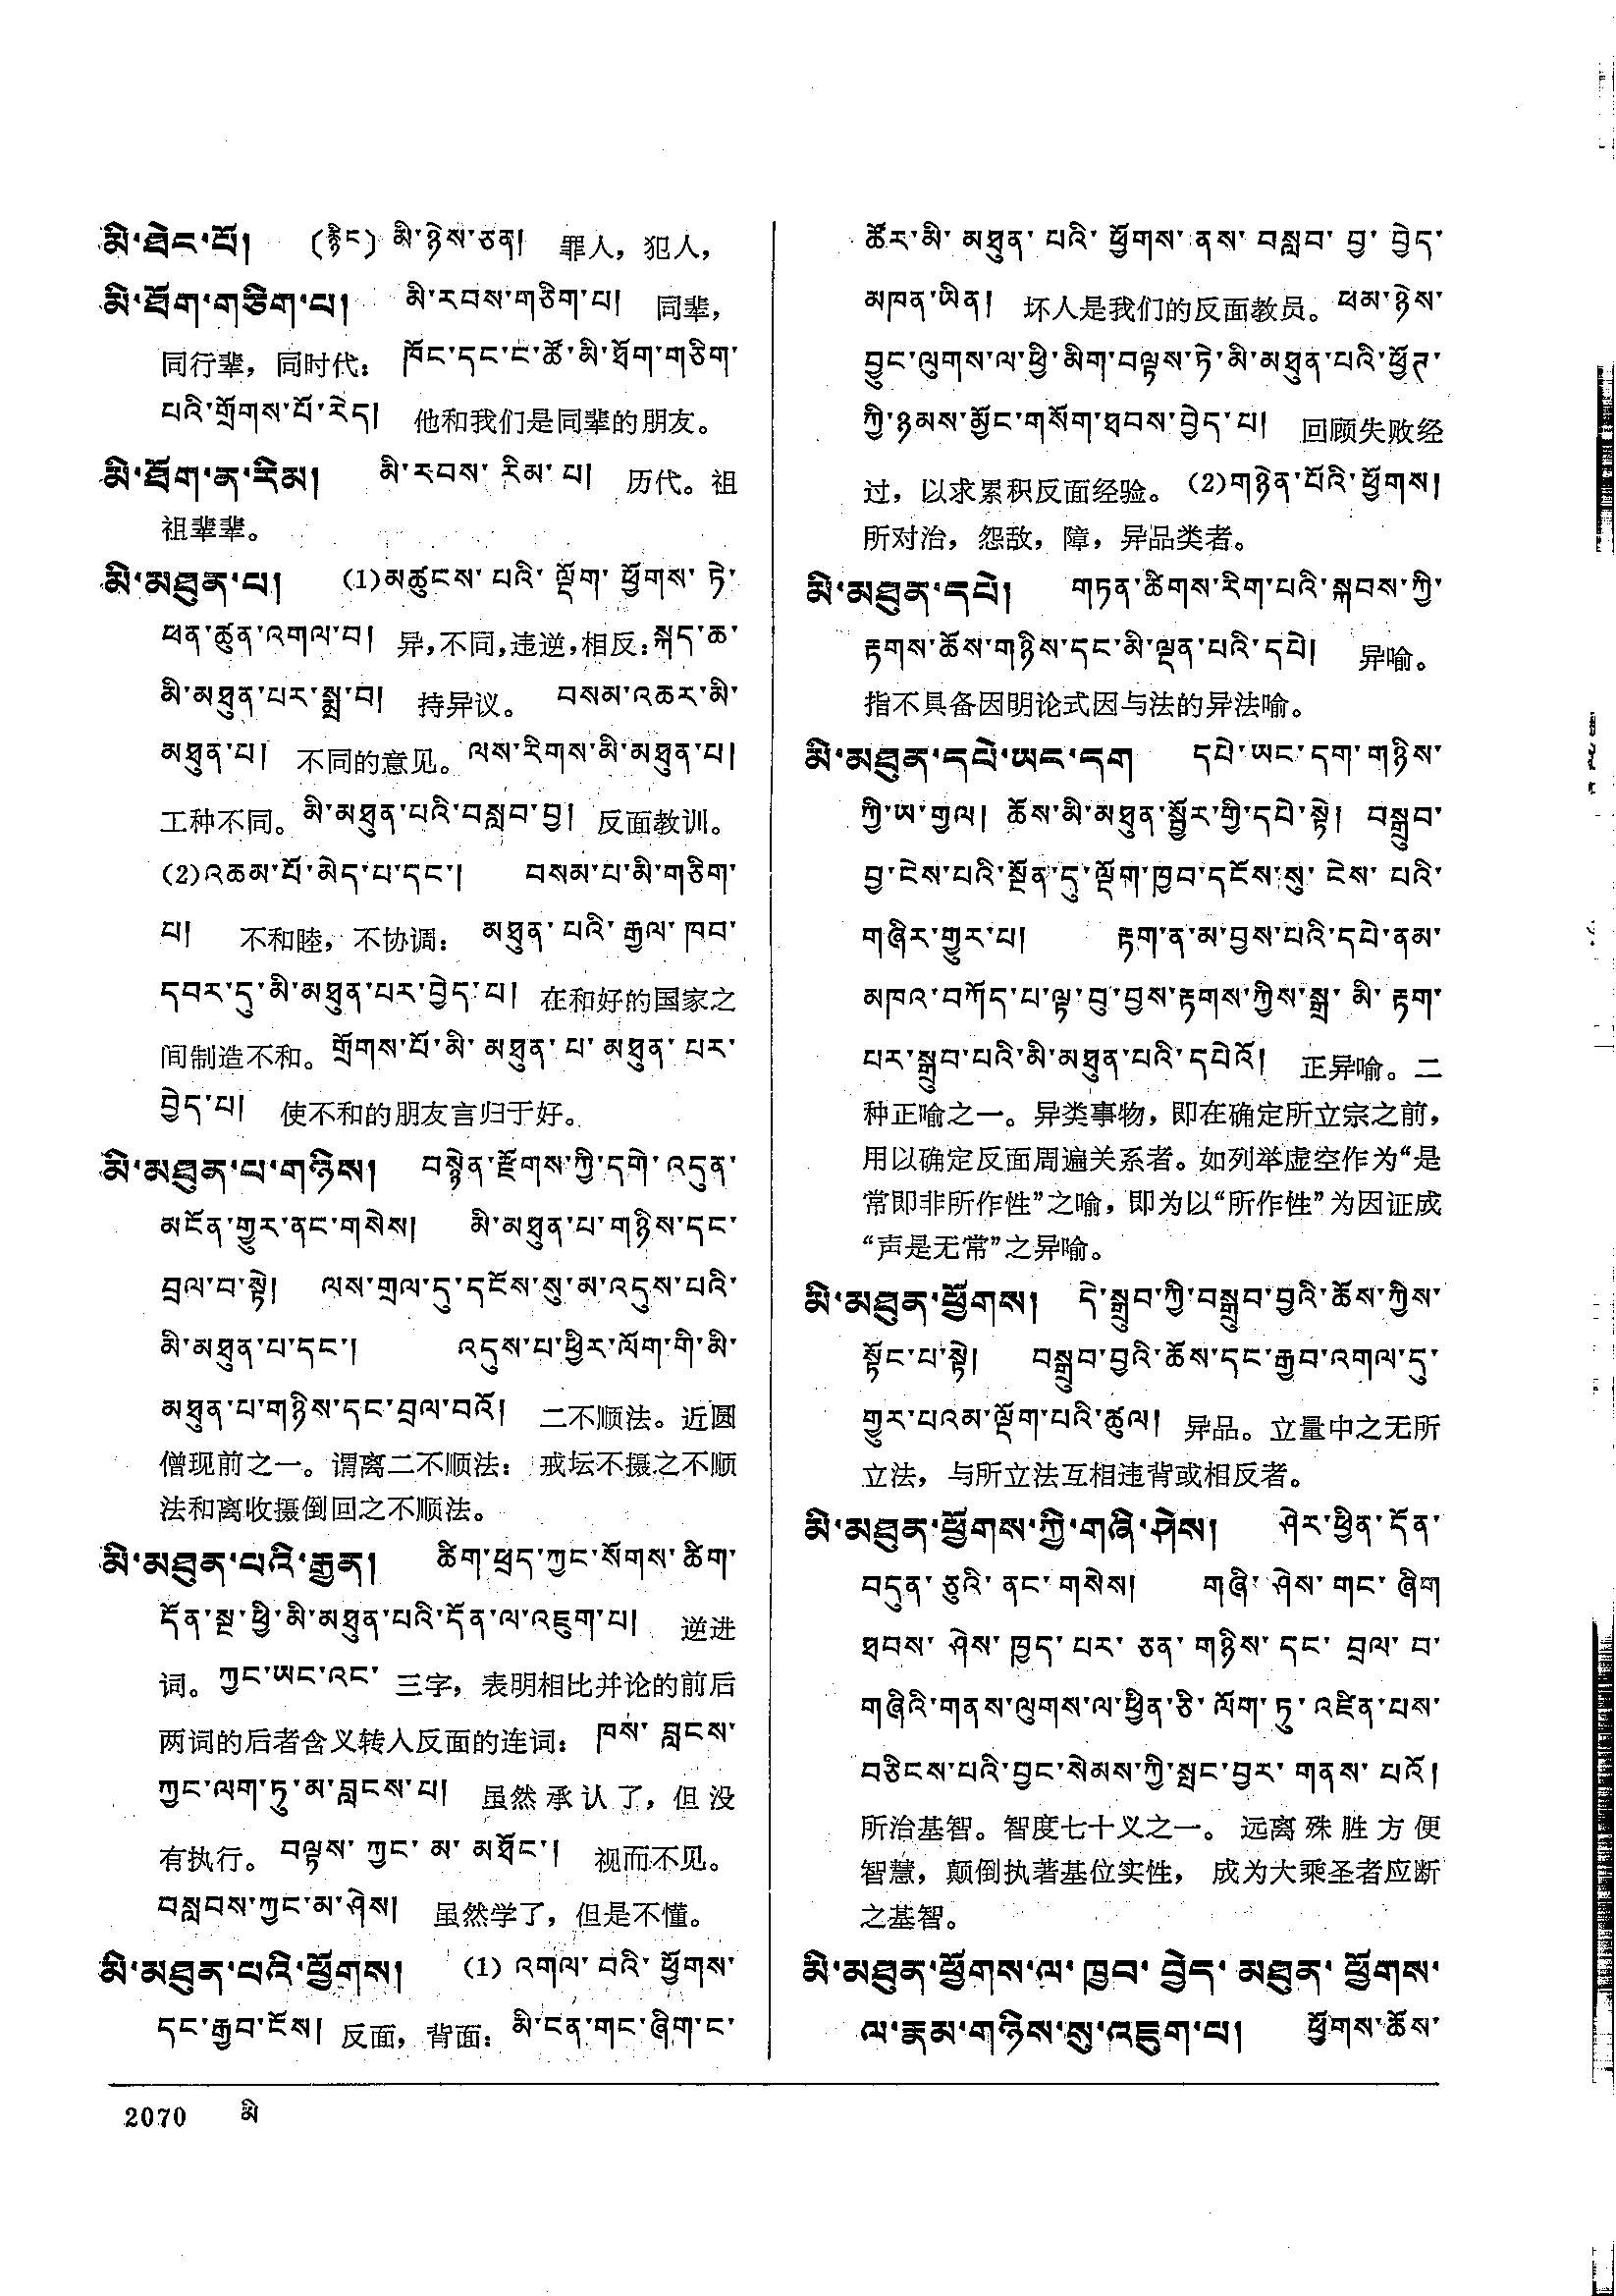 མི་ཐེང་པོ། (རྙིང) མི་ཉེས་ཅན། 罪人，犯人，
མི་ཐོག་གཅིག་པ། མི་རབས་གཅིག་པ། 同辈，
同行辈，同时代： ཁོང་དང་ང་ཚོ་མི་ཐོག་གཅིག་
པའི་གྲོགས་པོ་རེད། 他和我们是同辈的朋友。
མི་ཐོག་ན་རིམ། མི་རབས་ རིམ་ པ། 历代。祖
祖辈辈。
མི་མཐུན་པ། (1)མཚུངས་ པའི་ ལྡོག་ ཕྱོགས་ ཏེ་
ཕན་ཚུན་འགལ་བ། 异,不同,违逆,相反：སྐད་ཆ་
མི་མཐུན་པར་སྨྲ་བ། 持异议。 བསམ་འཆར་མི་
མཐུན་པ། 不同的意见。ལས་རིགས་མི་མཐུན་པ།
工种不同。མི་མཐུན་པའི་བསླབ་བྱ། 反面教训。
(2)འཆམ་པོ་མེད་པ་དང་། བསམ་པ་མི་གཅིག་
པ། 不和睦，不协调： མཐུན་ པའི་ རྒྱལ་ ཁབ་
དབར་དུ་མི་མཐུན་པར་བྱེད་པ། 在和好的国家之
间制造不和。གྲོགས་པོ་མི་ མཐུན་ པ་ མཐུན་ པར་
བྱེད་པ། 使不和的朋友言归于好。
མི་མཐུན་པ་གཉིས། བསྙེན་རྫོགས་ཀྱི་དགེ་འདུན་
མངོན་གྱུར་ནང་གསེས། མི་མཐུན་པ་གཉིས་དང་
བྲལ་བ་སྟེ། ལས་གྲལ་དུ་དངོས་སུ་མ་འདུས་པའི་
མི་མཐུན་པ་དང་། འདུས་པ་ཕྱིར་ལོག་གི་མི་
མཐུན་པ་གཉིས་དང་བྲལ་བའོ། 二不顺法。近圆
僧现前之一。谓离二不顺法： 戒坛不摄之不顺
法和离收摄倒回之不顺法。
མི་མཐུན་པའི་རྒྱན། ཚིག་ཕྲད་ཀྱང་སོགས་ཚིག་
དོན་སྔ་ཕྱི་མི་མཐུན་པའི་དོན་ལ་འཇུག་པ། 逆进
词。ཀྱང་ཡང་འང་ 三字，表明相比并论的前后
两词的后者含义转入反面的连词： ཁས་ བླངས་
ཀྱང་ལག་ཏུ་མ་བླངས་པ། 虽然承认了，但没
有执行。 བལྟས་ ཀྱང་ མ་ མཐོང་། 视而不见。
བསླབས་ཀྱང་མ་ཤེས། 虽然学了，但是不懂。
མི་མཐུན་པའི་ཕྱོགས། (1) འགལ་ བའི་ ཕྱོགས་
དང་རྒྱབ་ངོས། 反面，背面：མི་ངན་གང་ཞིག་ང་
2070 མི
ཚོར་མི་ མཐུན་ པའི་ ཕྱོགས་ ནས་ བསླབ་ བྱ་ བྱེད་
མཁན་ཡིན། 坏人是我们的反面教员。ཕམ་ཉེས་
བྱུང་ལུགས་ལ་ཕྱི་མིག་བལྟས་ཏེ་མི་མཐུན་པའི་ཕྱོཊ་
ཀྱི་ཉམས་མྱོང་གསོག་ཐབས་བྱེད་པ། 回顾失败经
过，以求累积反面经验。(2)གཉེན་པོའི་ཕྱོགས།
所对治，怨敌，障，异品类者。
མི་མཐུན་དཔེ། གཏན་ཚིགས་རིག་པའི་སྐབས་ཀྱི་
རྟགས་ཆོས་གཉིས་དང་མི་ལྡན་པའི་དཔེ། 异喻。
指不具备因明论式因与法的异法喻。
མི་མཐུན་དཔེ་ཡང་དག དཔེ་ཡང་དག་གཉིས་
ཀྱི་ཡ་གྱལ། ཆོས་མི་མཐུན་སྦྱོར་གྱི་དཔེ་སྟེ། བསྒྲུབ་
བྱ་ངེས་པའི་སྔོན་དུ་ལྡོག་ཁྱབ་དངོས་སུ་ ངེས་ པའི་
གཞིར་གྱུར་པ། རྟག་ན་མ་བྱས་པའི་དཔེ་ནམ་
མཁའ་བཀོད་པ་ལྟ་བུ་བྱས་རྟགས་ཀྱིས་སྒྲ་ མི་ རྟག་
པར་སྒྲུབ་པའི་མི་མཐུན་པའི་དཔེའོ། 正异喻。二
种正喻之一。异类事物，即在确定所立宗之前，
用以确定反面周遍关系者。如列举虚空作为“是
常即非所作性”之喻，即为以“所作性”为因证成
“声是无常”之异喻。
མི་མཐུན་ཕྱོགས། དེ་སྒྲུབ་ཀྱི་བསྒྲུབ་བྱའི་ཆོས་ཀྱིས་
སྟོང་པ་སྟེ། བསྒྲུབ་བྱའི་ཆོས་དང་རྒྱབ་འགལ་དུ་
གྱུར་པའམ་ལྡོག་པའི་ཚུལ། 异品。立量中之无所
立法，与所立法互相违背或相反者。
མི་མཐུན་ཕྱོགས་ཀྱི་གཞི་ཤེས། ཤེར་ཕྱིན་དོན་
བདུན་ཅུའི་ནང་གསེས། གཞི་ ཤེས་ གང་ ཞིག
ཐབས་ ཤེས་ ཁྱད་ པར་ ཅན་ གཉིས་ དང་ བྲལ་ བ་
གཞིའི་གནས་ལུགས་ལ་ཕྱིན་ཅི་ ལོག་ ཏུ་ འཛིན་པས་
བཅིངས་པའི་བྱང་སེམས་ཀྱི་སྤང་བྱར་ གནས་ པའོ།
所治基智。智度七十义之一。远离殊胜方便
智慧，颠倒执著基位实性， 成为大乘圣者应断
之基智。
མི་མཐུན་ཕྱོགས་ལ་ ཁྱབ་ བྱེད་ མཐུན་ ཕྱོགས་
ལ་རྣམ་གཉིས་སུ་འཇུག་པ། ཕྱོགས་ཆོས་